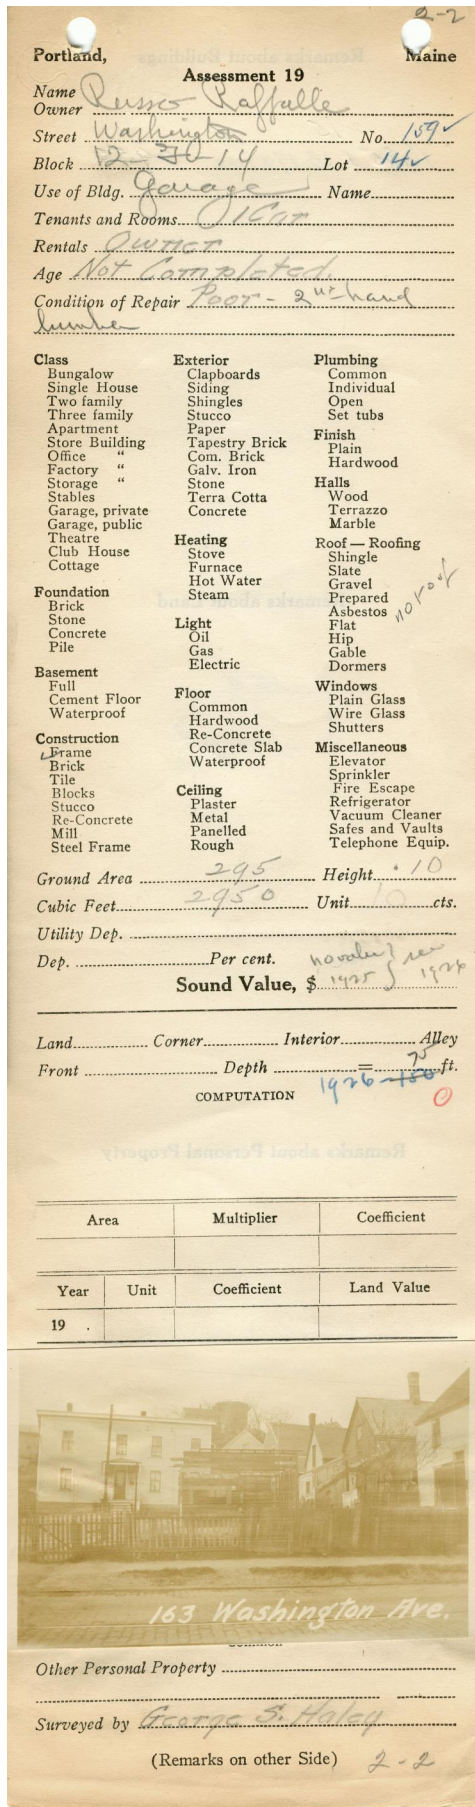 2-2
Portland, Maine
Assessment 19
Name
Owner Russo Raffalle
Street Washington No. 159 ✓
Block 12-30-14 Lot 14 ✓
Use of Bldg. Garage Name
Tenants and Rooms 1 Car
Rentals Owner
Age Not Completed.
Condition of Repair Poor - 2nd hand
lumber
Class
Bungalow
Single House
Two family
Three family
Apartment
Store Building
Office "
Factory "
Storage "
Stables
Garage, private
Garage, public
Theatre
Club House
Cottage
Foundation
Brick
Stone
Concrete
Pile
Basement
Full
Cement Floor
Waterproof
Construction
✓ Frame
Brick
Tile
Blocks
Stucco
Re-Concrete
Mill
Steel Frame
Exterior
Clapboards
Siding
Shingles
Stucco
Paper
Tapestry Brick
Com. Brick
Galv. Iron
Stone
Terra Cotta
Concrete
Heating
Stove
Furnace
Hot Water
Steam
Light
Oil
Gas
Electric
Floor
Common
Hardwood
Re-Concrete
Concrete Slab
Waterproof
Ceiling
Plaster
Metal
Panelled
Rough
Plumbing
Common
Individual
Open
Set tubs
Finish
Plain
Hardwood
Halls
Wood
Terrazzo
Marble
Roof — Roofing
Shingle
Slate
Gravel
Prepared
Asbestos no roof
Flat
Hip
Gable
Dormers
Windows
Plain Glass
Wire Glass
Shutters
Miscellaneous
Elevator
Sprinkler
Fire Escape
Refrigerator
Vacuum Cleaner
Safes and Vaults
Telephone Equip.
Ground Area 295 Height 10
Cubic Feet 2950 Unit 10 cts.
Utility Dep.
Dep. Per cent. no value } see
Sound Value, $ 1925 } 1926
Land Corner Interior Alley
75
Front Depth = ft.
1926-150
COMPUTATION 0
Remarks about Personal Property
Area Multiplier Coefficient
Year Unit Coefficient Land Value
19 .
163 Washington Ave.
Other Personal Property
Surveyed by George S. Haley
(Remarks on other Side) 2-2